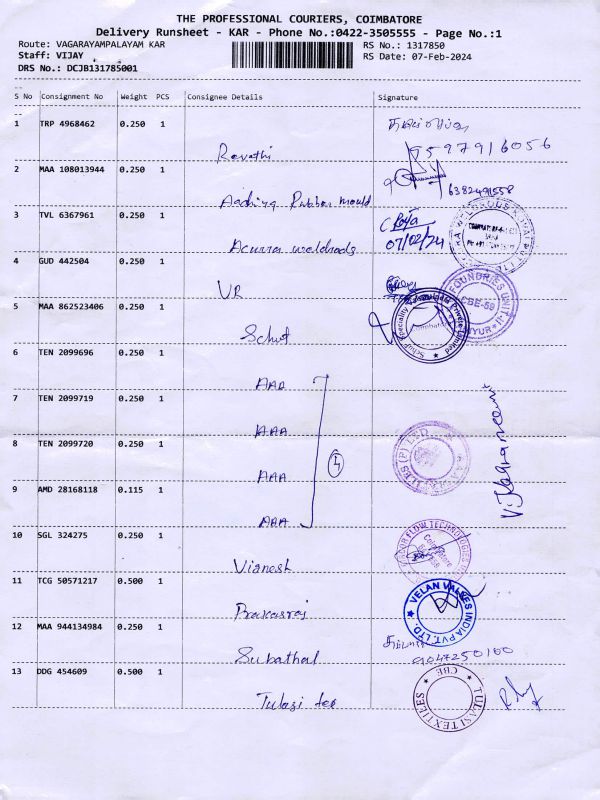 THE PROFESSIONAL COURIERS, COIMBATORE
Delivery Runsheet - KAR - Phone No.:0422-3505555 - Page No.:1
Route: VAGARAYAMPALAYAM KAR RS No.: 1317850
Staff: VIJAY RS Date: 07-Feb-2024
DRS No.: DCJB131785001
S No Consignment No Weight PCS Consignee Details Signature
1 TRP 4968462 0.250 1
Revathi 7597916056
2 MAA 108013944 0.250 1
Aadhiya Rubber mould 6382491558
3 TVL 6367961 0.250 1
C Roja
07/02/24
Acurra weldrods
4 GUD 442504 0.250 1
VR
FOUNDRIES UNIT
CBE-59
5 MAA 862523406 0.250 1
Schuf
Schuf Speciality Private Limited
Coimbatore
6 TEN 2099696 0.250 1
AAA
7 TEN 2099719 0.250 1
AAA
8 TEN 2099720 0.250 1
AAA
4
9 AMD 28168118 0.115 1
AAA
10 SGL 324275 0.250 1
Vignesh
FLOW TECHNOLOGIES
Coimbatore
11 TCG 50571217 0.500 1
Prakasraj
VELAN VALVES INDIA PVT. LTD.
12 MAA 944134984 0.250 1
Subathal
9047250100
13 DDG 454609 0.500 1
Tulasi tex
TULASI TEXTILES
CBE